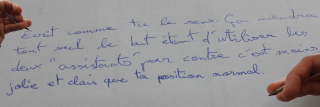 Ecrit comme tu le sens. Ça viendra
tout seul le but étant d'utiliser les
deux "assistants" par contre c'est moins
jolie et clair que ta position normal.